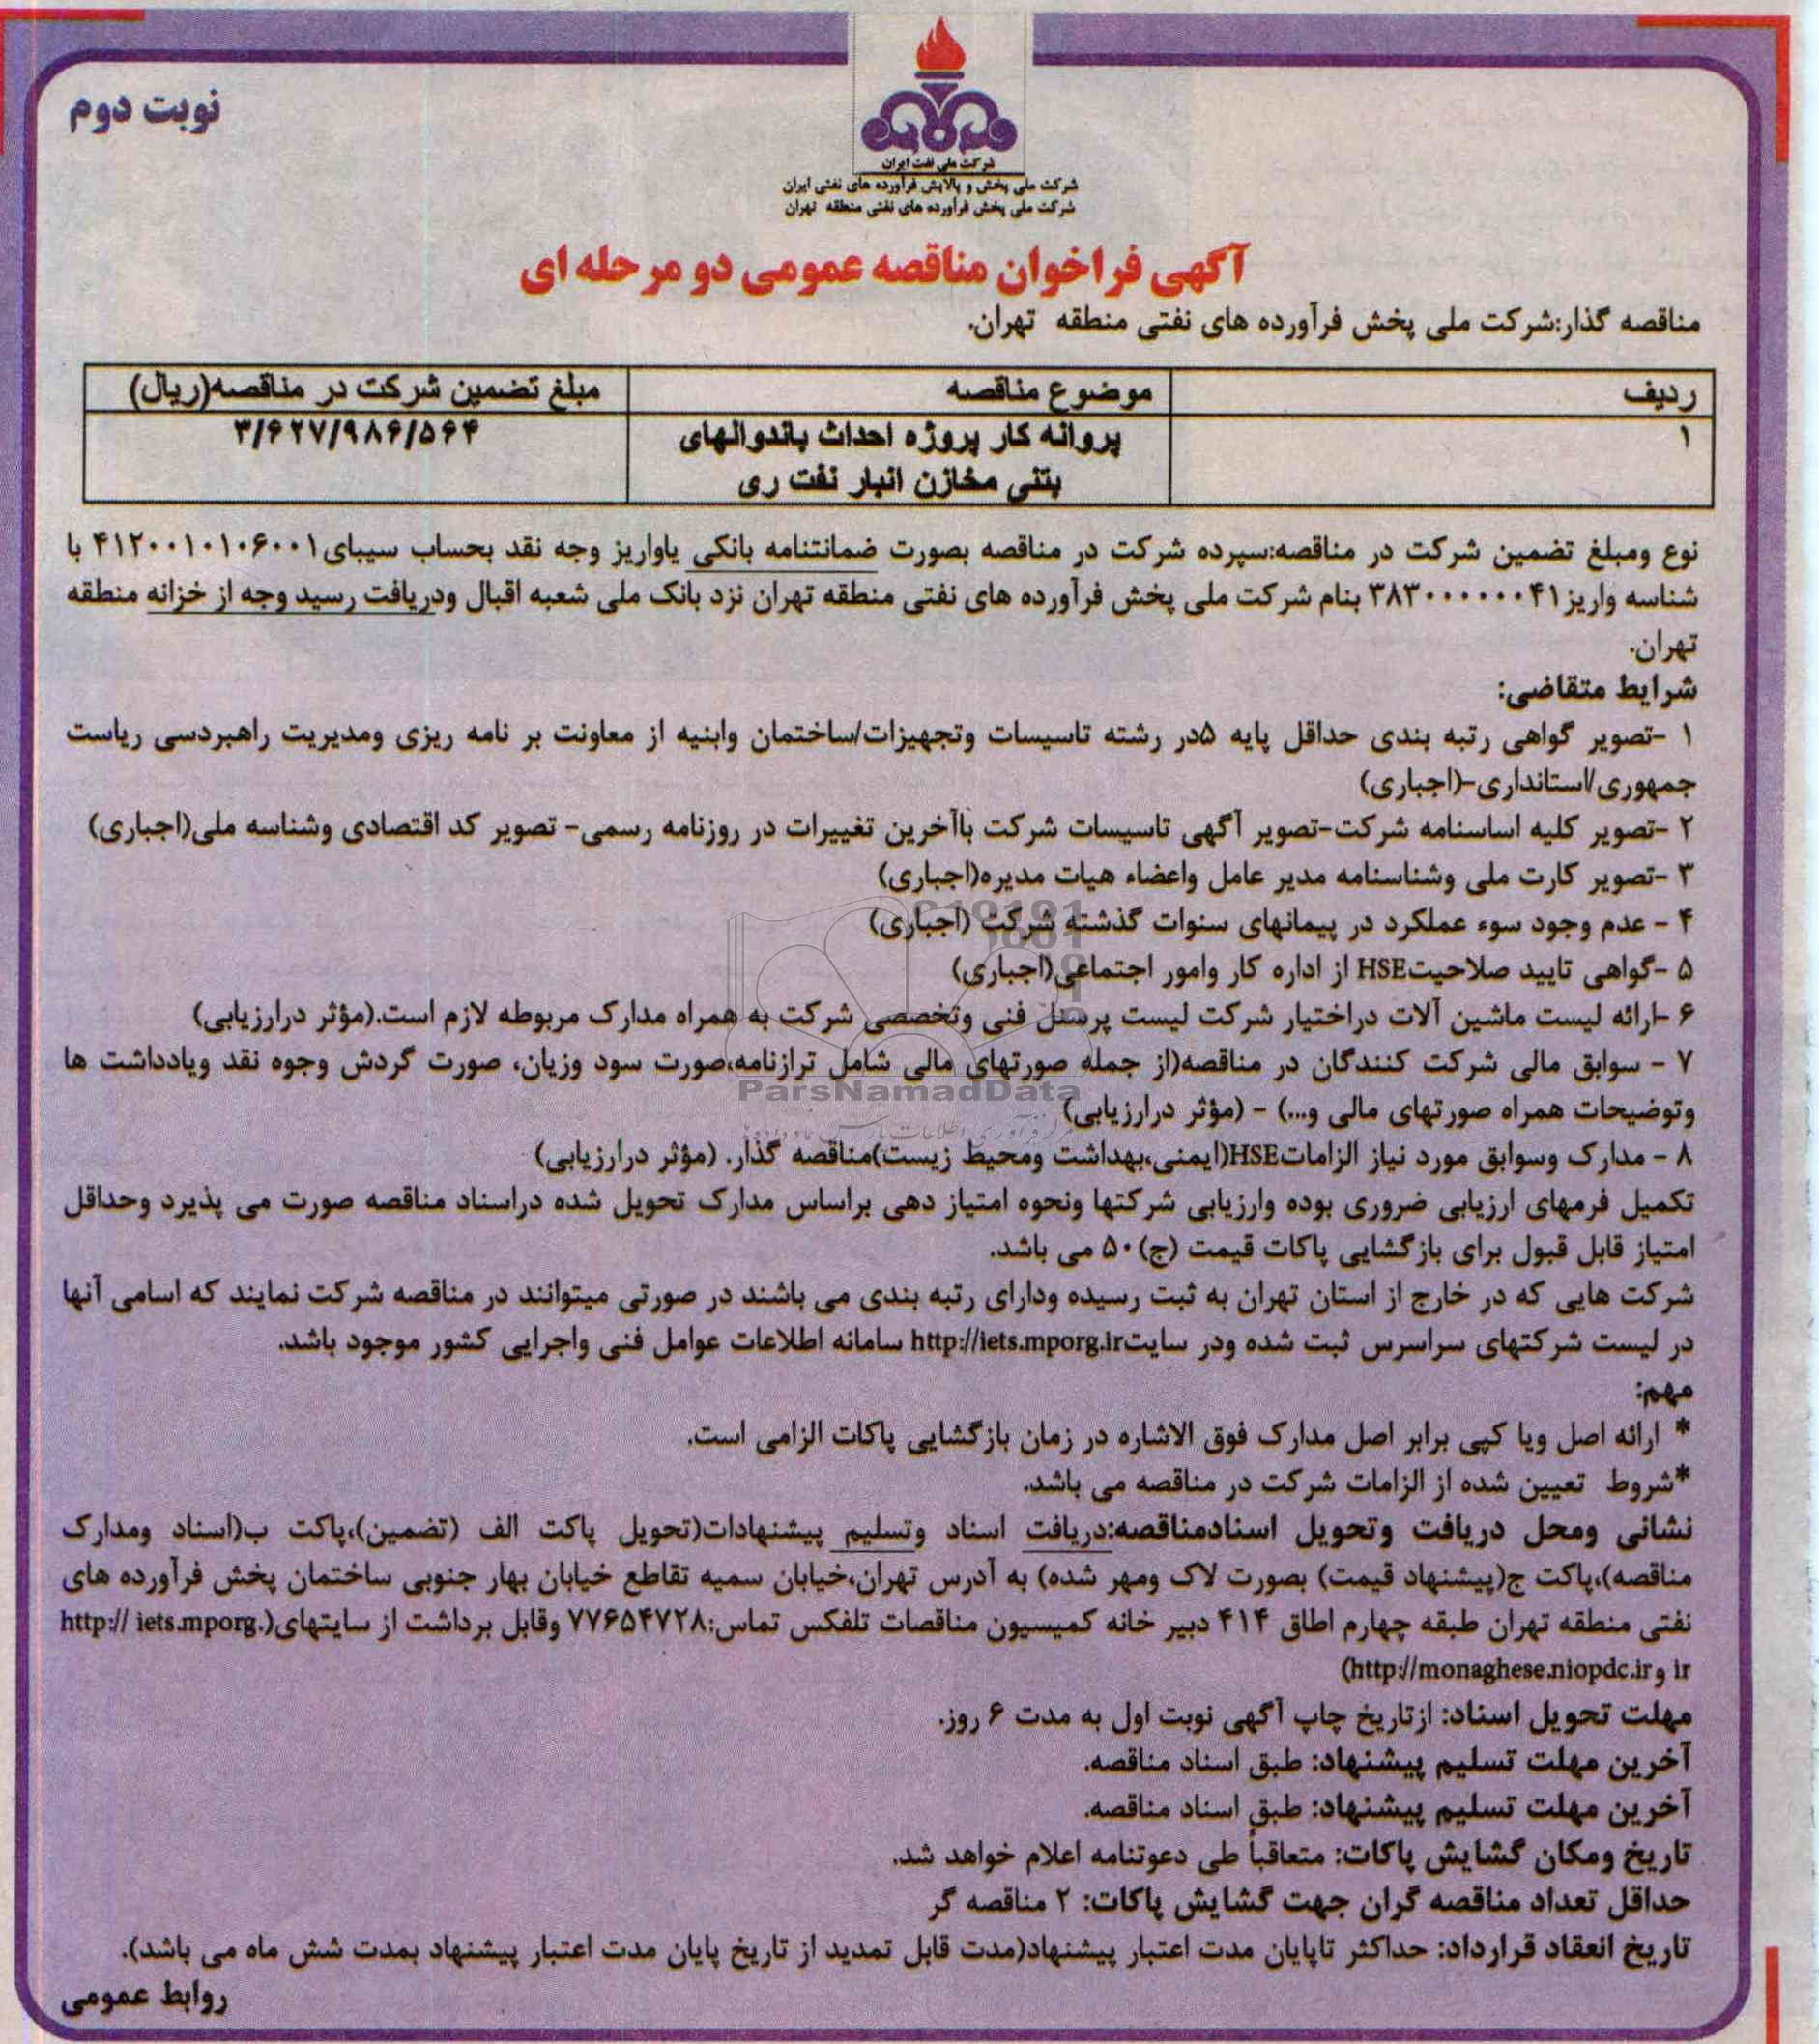 نوبت دوم
شرکت ملی نفت ایران
شرکت ملی پخش و پالایش فرآورده های نفتی ایران
شرکت ملی پخش فرآورده های نفتی منطقه تهران
آگهی فراخوان مناقصه عمومی دو مرحله ای
مناقصه گذار:شرکت ملی پخش فرآورده های نفتی منطقه تهران.
ردیف موضوع مناقصه مبلغ تضمین شرکت در مناقصه(ریال)
۱ پروانه کار پروژه احداث باندوالهای ۳/۶۲۷/۹۸۶/۵۶۴
بتنی مخازن انبار نفت ری
نوع ومبلغ تضمین شرکت در مناقصه:سپرده شرکت در مناقصه بصورت ضمانتنامه بانکی یاواریز وجه نقد بحساب سیبای۴۱۲۰۰۱۰۱۰۶۰۰۱ با
شناسه واریز۳۸۳۰۰۰۰۰۰۴۱ بنام شرکت ملی پخش فرآورده های نفتی منطقه تهران نزد بانک ملی شعبه اقبال ودریافت رسید وجه از خزانه منطقه
تهران.
شرایط متقاضی:
۱ -تصویر گواهی رتبه بندی حداقل پایه ۵در رشته تاسیسات وتجهیزات/ساختمان وابنیه از معاونت بر نامه ریزی ومدیریت راهبردسی ریاست
جمهوری/استانداری-(اجباری)
۲ -تصویر کلیه اساسنامه شرکت-تصویر آگهی تاسیسات شرکت باآخرین تغییرات در روزنامه رسمی- تصویر کد اقتصادی وشناسه ملی(اجباری)
۳ -تصویر کارت ملی وشناسنامه مدیر عامل واعضاء هیات مدیره(اجباری)
۴ - عدم وجود سوء عملکرد در پیمانهای سنوات گذشته شرکت (اجباری)
۵ -گواهی تایید صلاحیتHSE از اداره کار وامور اجتماعی(اجباری)
۶ -ارائه لیست ماشین آلات دراختیار شرکت لیست پرسنل فنی وتخصصی شرکت به همراه مدارک مربوطه لازم است.(مؤثر درارزیابی)
۷ - سوابق مالی شرکت کنندگان در مناقصه(از جمله صورتهای مالی شامل ترازنامه،صورت سود وزیان، صورت گردش وجوه نقد ویادداشت ها
ParsNamadData
وتوضیحات همراه صورتهای مالی و...) - (مؤثر درارزیابی)
۸ - مدارک وسوابق مورد نیاز الزاماتHSE(ایمنی،بهداشت ومحیط زیست)مناقصه گذار. (مؤثر درارزیابی)
تکمیل فرمهای ارزیابی ضروری بوده وارزیابی شرکتها ونحوه امتیاز دهی براساس مدارک تحویل شده دراسناد مناقصه صورت می پذیرد وحداقل
امتیاز قابل قبول برای بازگشایی پاکات قیمت (ج)۵۰ می باشد.
شرکت هایی که در خارج از استان تهران به ثبت رسیده ودارای رتبه بندی می باشند در صورتی میتوانند در مناقصه شرکت نمایند که اسامی آنها
در لیست شرکتهای سراسرس ثبت شده ودر سایتhttp://iets.mporg.ir سامانه اطلاعات عوامل فنی واجرایی کشور موجود باشد.
مهم:
* ارائه اصل ویا کپی برابر اصل مدارک فوق الاشاره در زمان بازگشایی پاکات الزامی است.
*شروط تعیین شده از الزامات شرکت در مناقصه می باشد.
نشانی ومحل دریافت وتحویل اسنادمناقصه:دریافت اسناد وتسلیم پیشنهادات(تحویل پاکت الف (تضمین)،پاکت ب(اسناد ومدارک
مناقصه)،پاکت ج(پیشنهاد قیمت) بصورت لاک ومهر شده) به آدرس تهران،خیابان سمیه تقاطع خیابان بهار جنوبی ساختمان پخش فرآورده های
نفتی منطقه تهران طبقه چهارم اطاق ۴۱۴ دبیر خانه کمیسیون مناقصات تلفکس تماس:۷۷۶۵۴۷۲۸ وقابل برداشت از سایتهای(http:// iets.mporg.
ir و http://monaghese.niopdc.ir)
مهلت تحویل اسناد: ازتاریخ چاپ آگهی نوبت اول به مدت ۶ روز.
آخرین مهلت تسلیم پیشنهاد: طبق اسناد مناقصه.
آخرین مهلت تسلیم پیشنهاد: طبق اسناد مناقصه.
تاریخ ومکان گشایش پاکات: متعاقباً طی دعوتنامه اعلام خواهد شد.
حداقل تعداد مناقصه گران جهت گشایش پاکات: ۲ مناقصه گر
تاریخ انعقاد قرارداد: حداکثر تاپایان مدت اعتبار پیشنهاد(مدت قابل تمدید از تاریخ پایان مدت اعتبار پیشنهاد بمدت شش ماه می باشد).
روابط عمومی